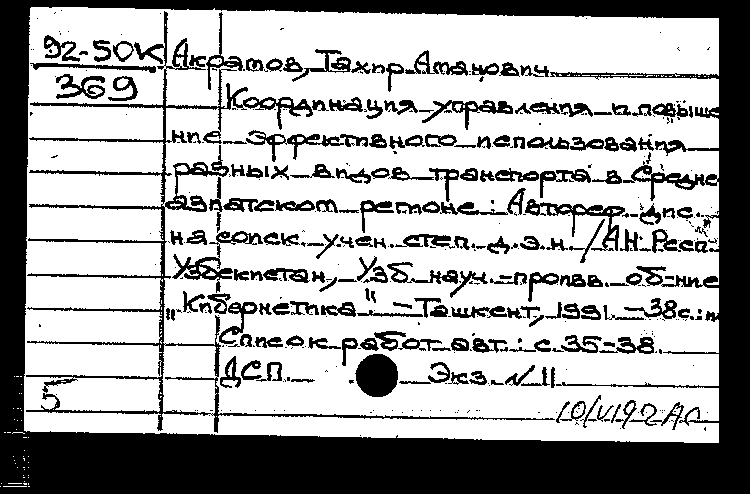 92-50К Акрамов, Тахир Аманович
369 Координация управления и повыше
ние эффективного использования
разных видов транспорта в Средне
азиатском регионе : Автореф. дис.
на соиск. учен. степ. д.э.н. / АН Респ.
Узбекистан, Узб. науч.-произв. об-ние
"Кибернетика". - Ташкент, 1991. - 38с.:
Список работ авт.: с.35-38.
ДСП. Экз. N 11.
5
10/VI92